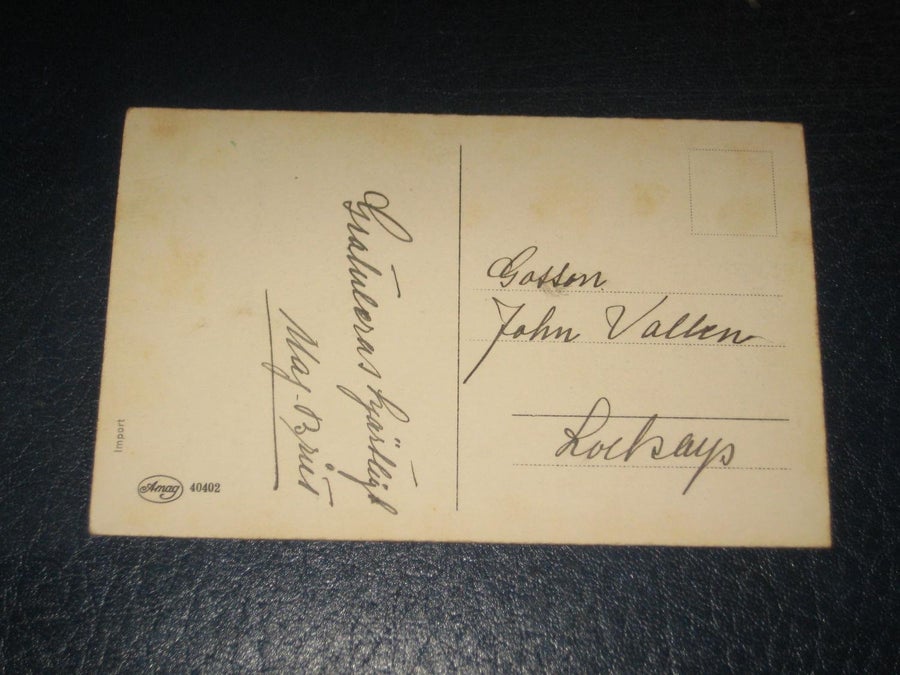 Gratuleras hjärtligt
Maj-Brit
Gossen
John Vallen
Import
Amag 40402